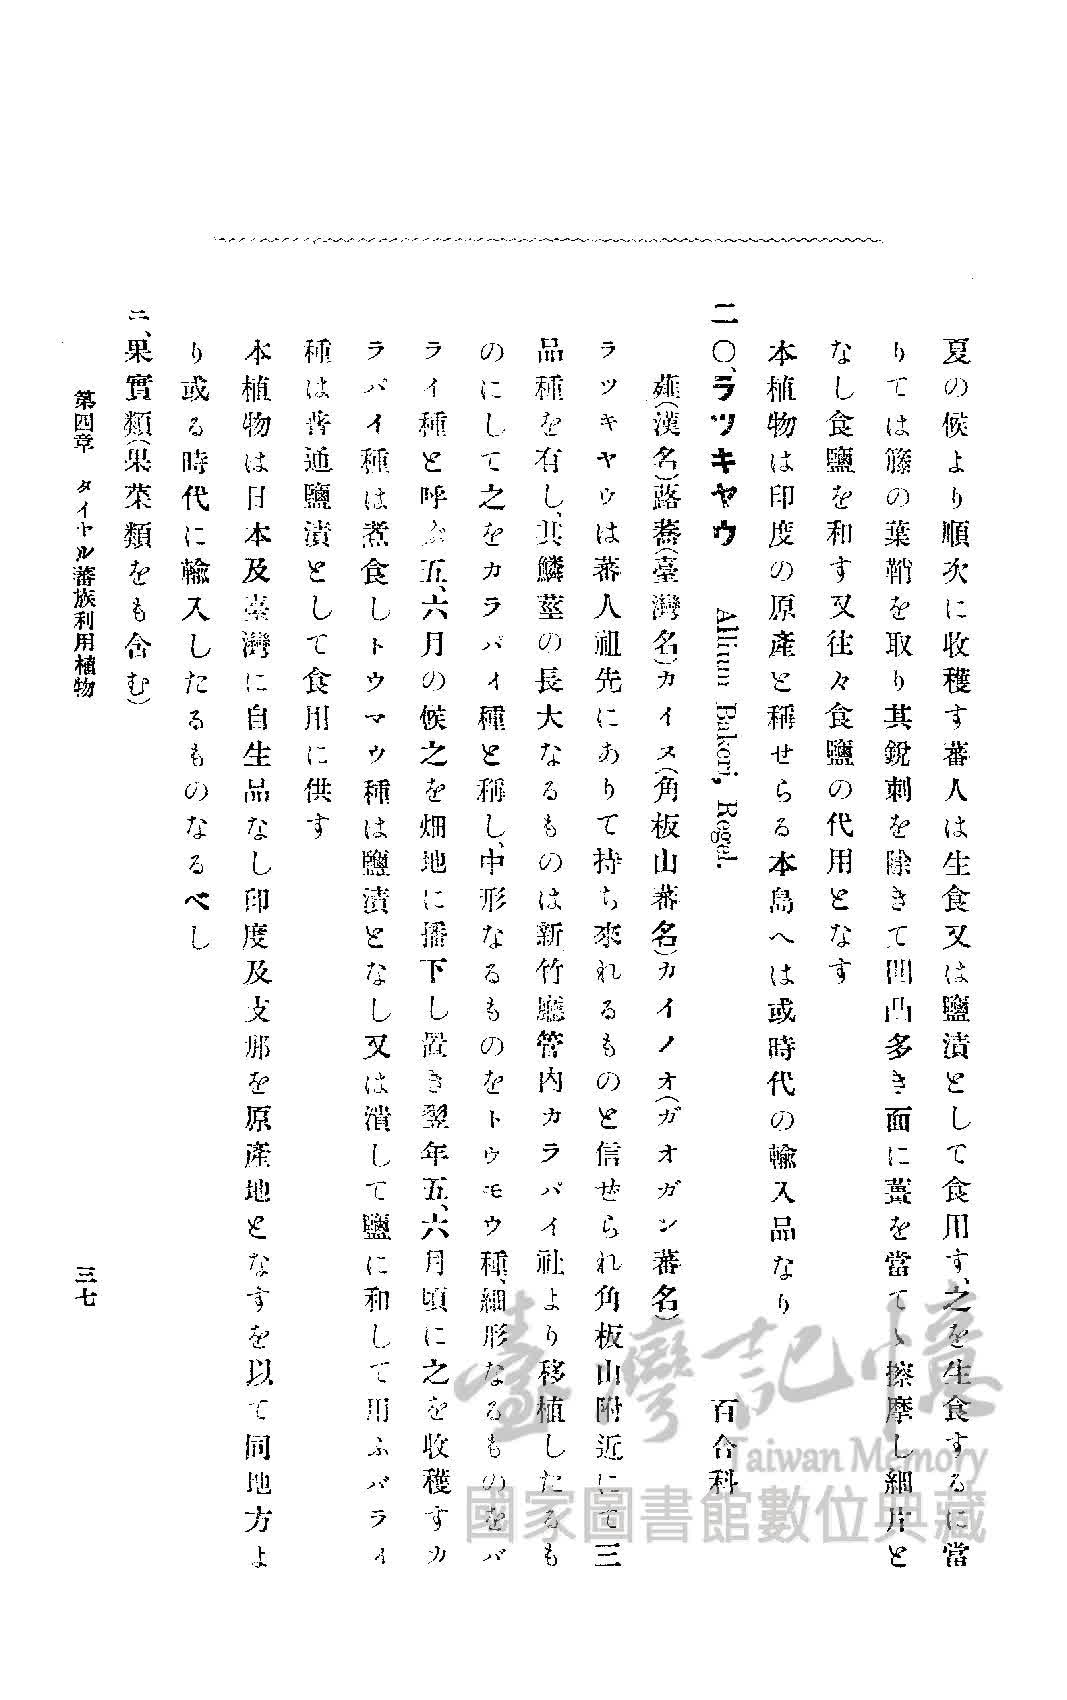 夏の候より順次に收穫す蕃人は生食又は鹽漬として食用す、之を生食するに當
りては籐の葉鞘を取り其銳刺を除きて凹凸多き面に薑を當てゝ擦摩し細片と
なし食鹽を和す又往々食鹽の代用となす
本植物は印度の原產と稱せらる本島へは或時代の輸入品なり
二〇、ラツキヤウ Allium Bakeri, Regel. 百合科
薤(漢名)蕗蕎(臺灣名)カイヌ(角板山蕃名)カイノオ(ガオガン蕃名)
ラツキヤウは蕃人祖先にありて持ち來れるものと信ぜられ角板山附近にて三
品種を有し、其鱗莖の長大なるものは新竹廳管內カラパイ社より移植したるも
のにして之をカラパイ種と稱し、中形なるものをトウモウ種、細形なるものをバ
ライ種と呼ぶ五、六月の候之を畑地に播下し置き翌年五、六月頃に之を收穫すカ
ラパイ種は煮食しトウマウ種は鹽漬となし又は潰して鹽に和して用ふバライ
種は普通鹽漬として食用に供す
本植物は日本及臺灣に自生品なし印度及支那を原產地となすを以て同地方よ
り或る時代に輸入したるものなるべし
ニ、果實類(果菜類をも含む)
第四章 タイヤル蕃族利用植物 三七
臺灣記憶
Taiwan Memory
國家圖書館數位典藏